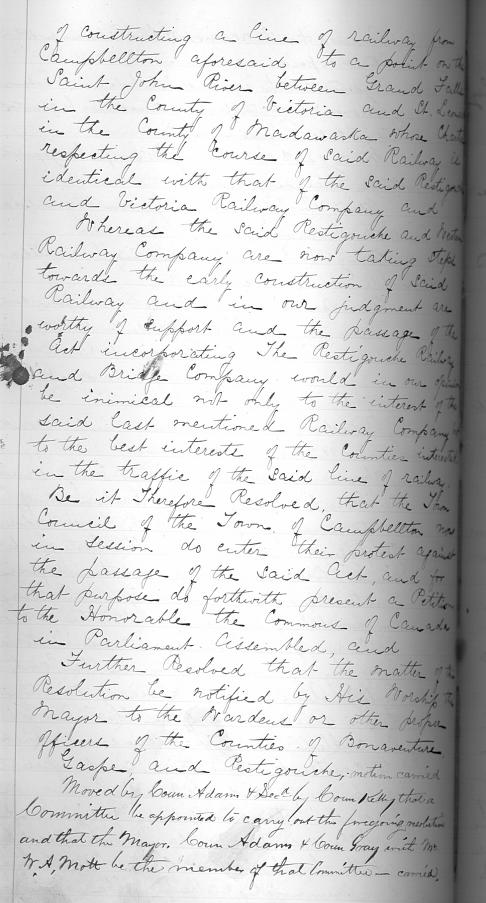 of constructing a line of railway from
Campbellton aforesaid to a point on the
Saint John River between Grand Falls
in the County of Victoria and St. Leona
in the County of Madawaska whose Chart
respecting the Course of said Railway is
identical with that of the said Restigou
and Victoria Railway Company and
Whereas the said Restigouche and Western
Railway Company are now taking steps
towards the early construction of said
Railway and in our judgment are
worthy of support and the passage of the
Act incorporating The Restigouche Railway
and Bridge Company would in our opinion
be inimical not only to the interest of the
said last mentioned Railway Company
to the best interests of the Counties interested
in the traffic of the said line of railway.
Be it Therefore Resolved, that the Town
Council of the Town of Campbellton now
in session do enter their protest against
the passage of the said Act, and for
that purpose do forthwith present a Petition
to the Honorable the Commons of Canada
in Parliament Assembled, and
Further Resolved that the matter of the
Resolution be notified by His Worship the
Mayor to the Wardens or other proper
officers of the Counties of Bonaventure
Gaspe and Restigouche, motion carried
Moved by Coun Adams & Sec'd by Coun Kelly that a
Committee be appointed to carry out the foregoing resolution
and that the Mayor, Coun Adams & Coun Gray with Mr
W.A. Mott be the members of that Committee — carried.